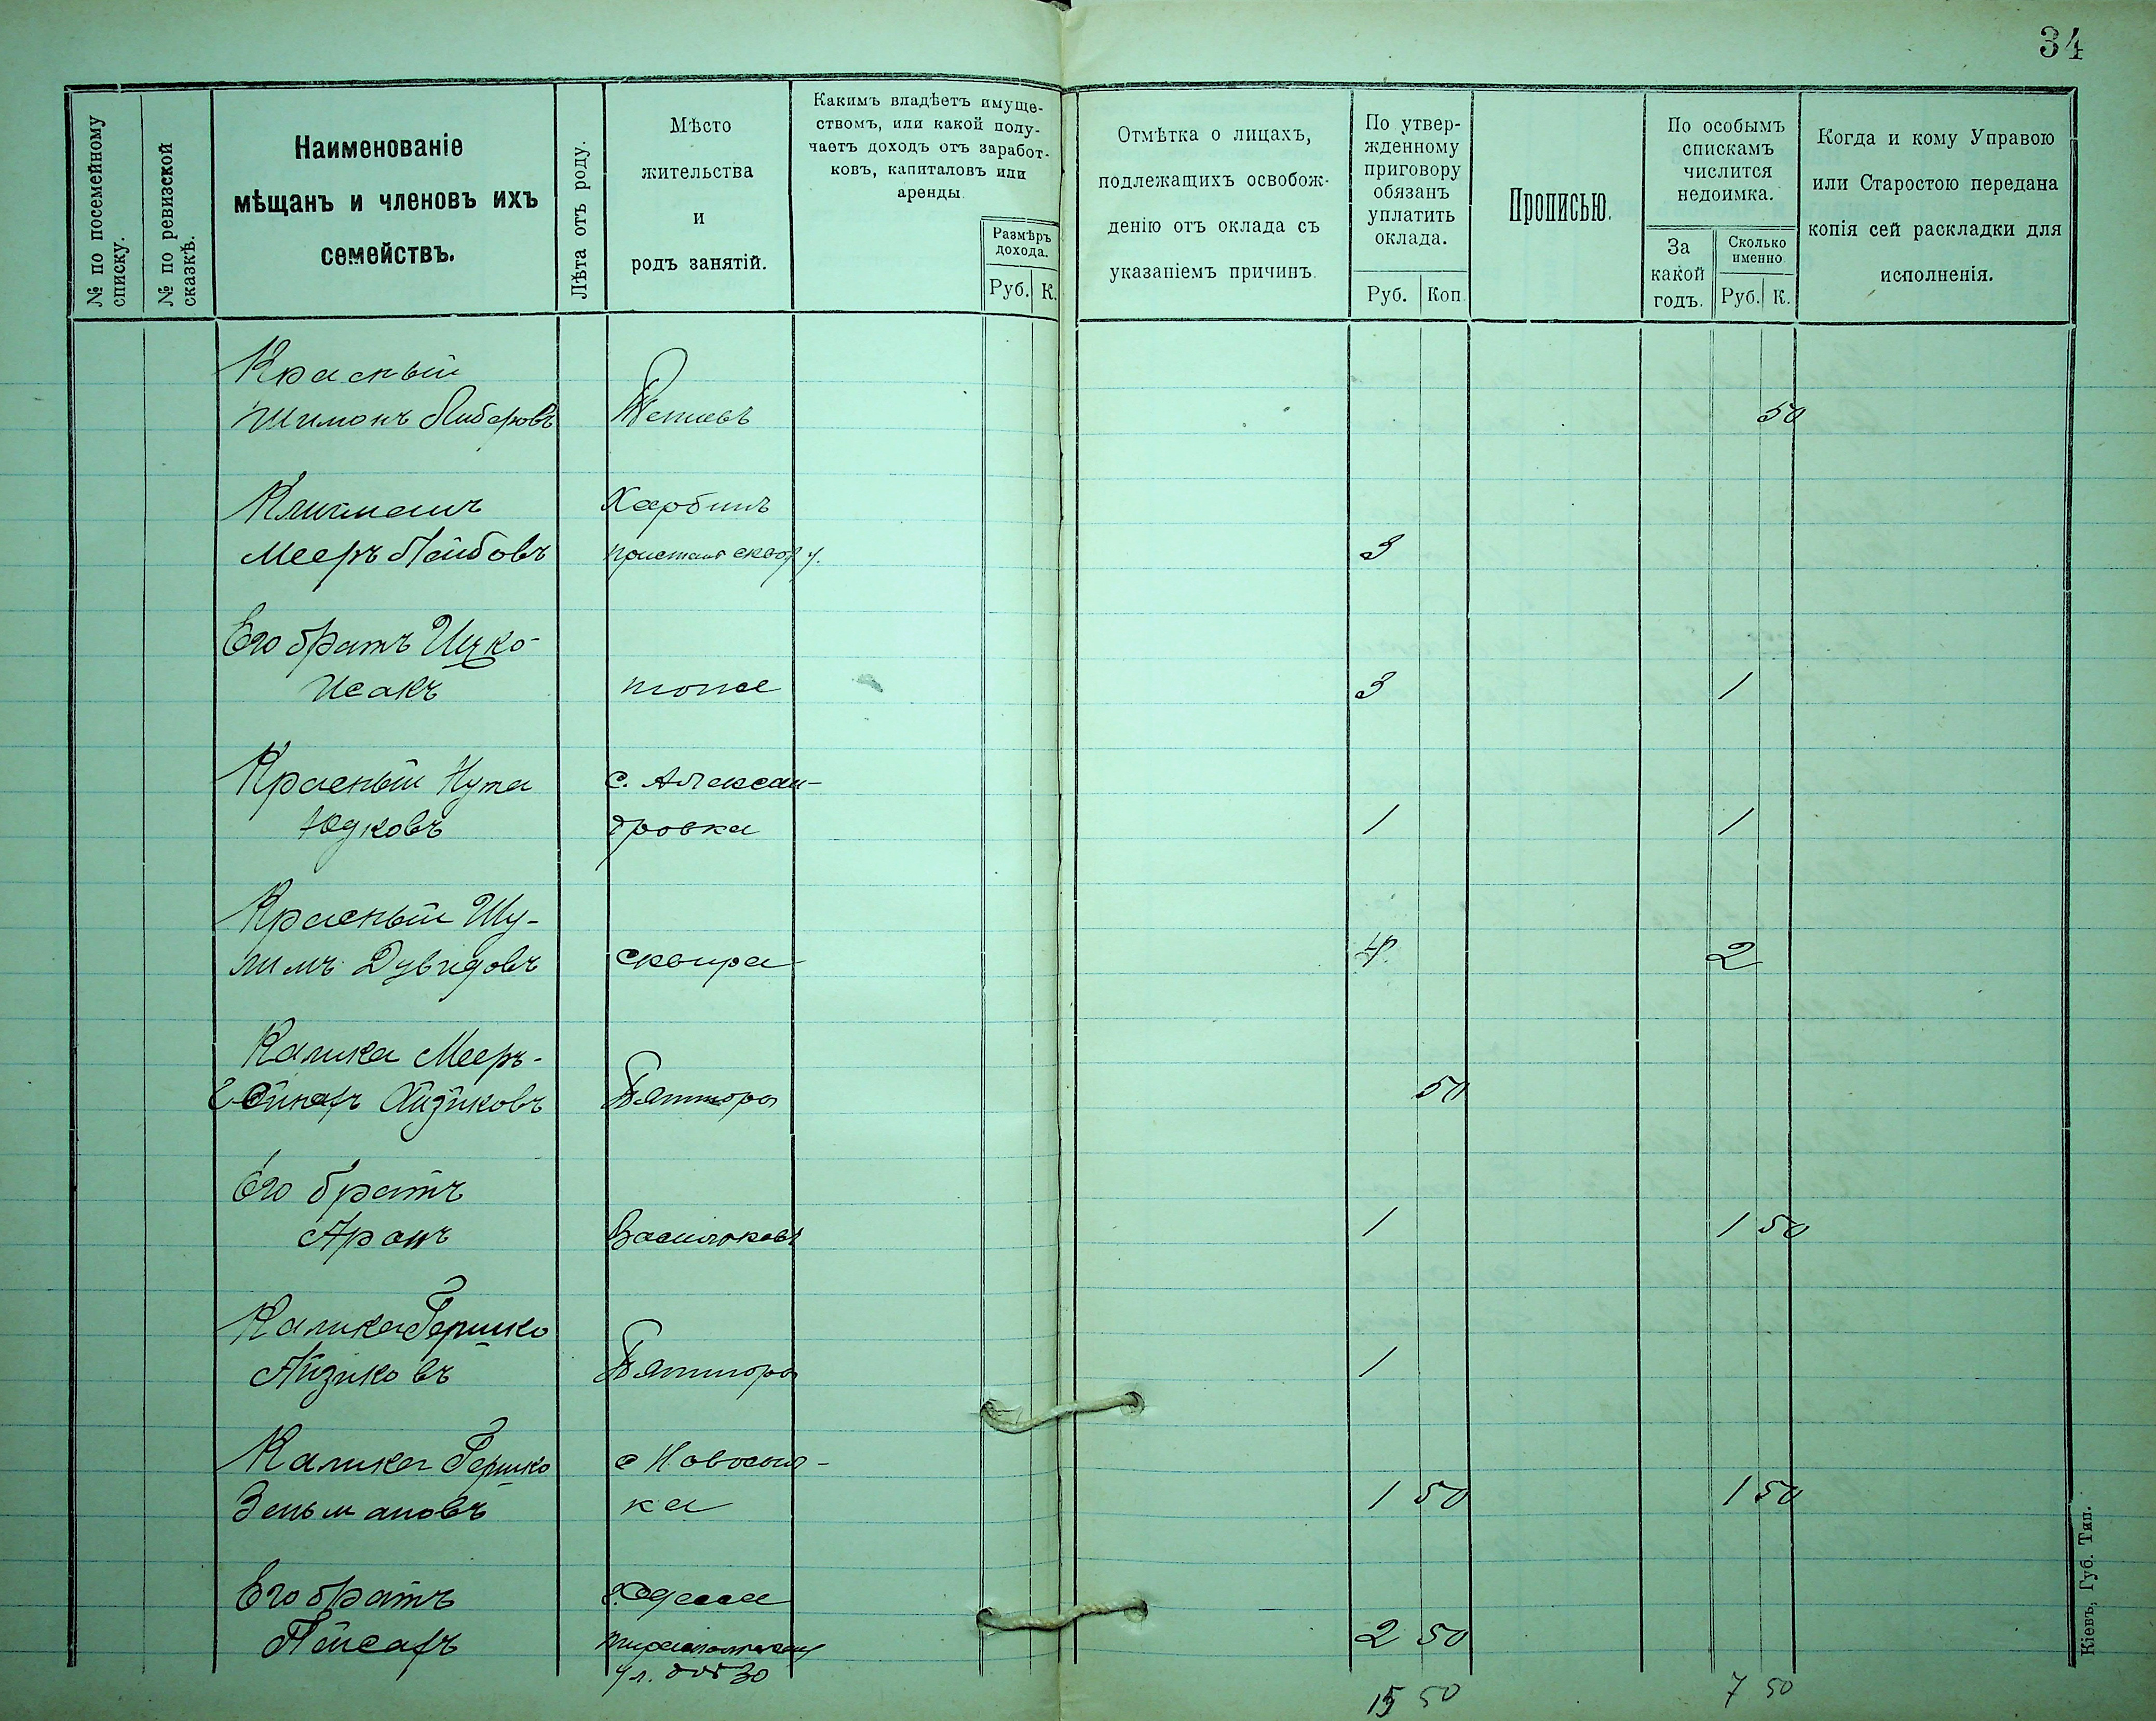 34
№ по посемейному списку.
№ по ревизской сказкѣ.
Наименованіе
мѣщанъ и членовъ ихъ
семействъ.
Лѣта отъ роду.
Мѣсто
жительства
и
родъ занятій.
Какимъ владѣетъ имуще-
ствомъ, или какой полу-
чаетъ доходъ отъ заработ-
ковъ, капиталовъ или
аренды.
Размѣръ
дохода.
Руб. К.
Отмѣтка о лицахъ,
подлежащихъ освобож-
денію отъ оклада съ
указаніемъ причинъ.
По утвер-
жденному
приговору
обязанъ
уплатить
оклада.
Руб. Коп.
Прописью.
По особымъ
спискамъ
числится
недоимка.
За
какой
годъ.
Сколько
именно
Руб. К.
Когда и кому Управою
или Старостою передана
копія сей раскладки для
исполненія.
Красный
Шимонъ Либеровъ Тетіевъ 50
Клигманъ Харбинъ
Мееръ Лейбовъ 3
Его братъ Ицко-
Исакъ тоже 3 1
Красный Нута с. Алексан-
Юдковъ дровка 1 1
Красный Шу-
лимъ Дувидовъ Сквира 4 2
Калика Мееръ-
Айзиковъ Пятигоры 50
Его братъ
Аронъ Васильковъ 1 1 50
Калика Гершко
Айзиковъ Пятигоры 1
Калика Гершко с Новосел-
Зельмановъ ка 1 50 1 50
Его братъ г. Одесса
Пейсахъ 2 50
ул. 30
15 50 7 50
Кіевъ, Губ. Тип.